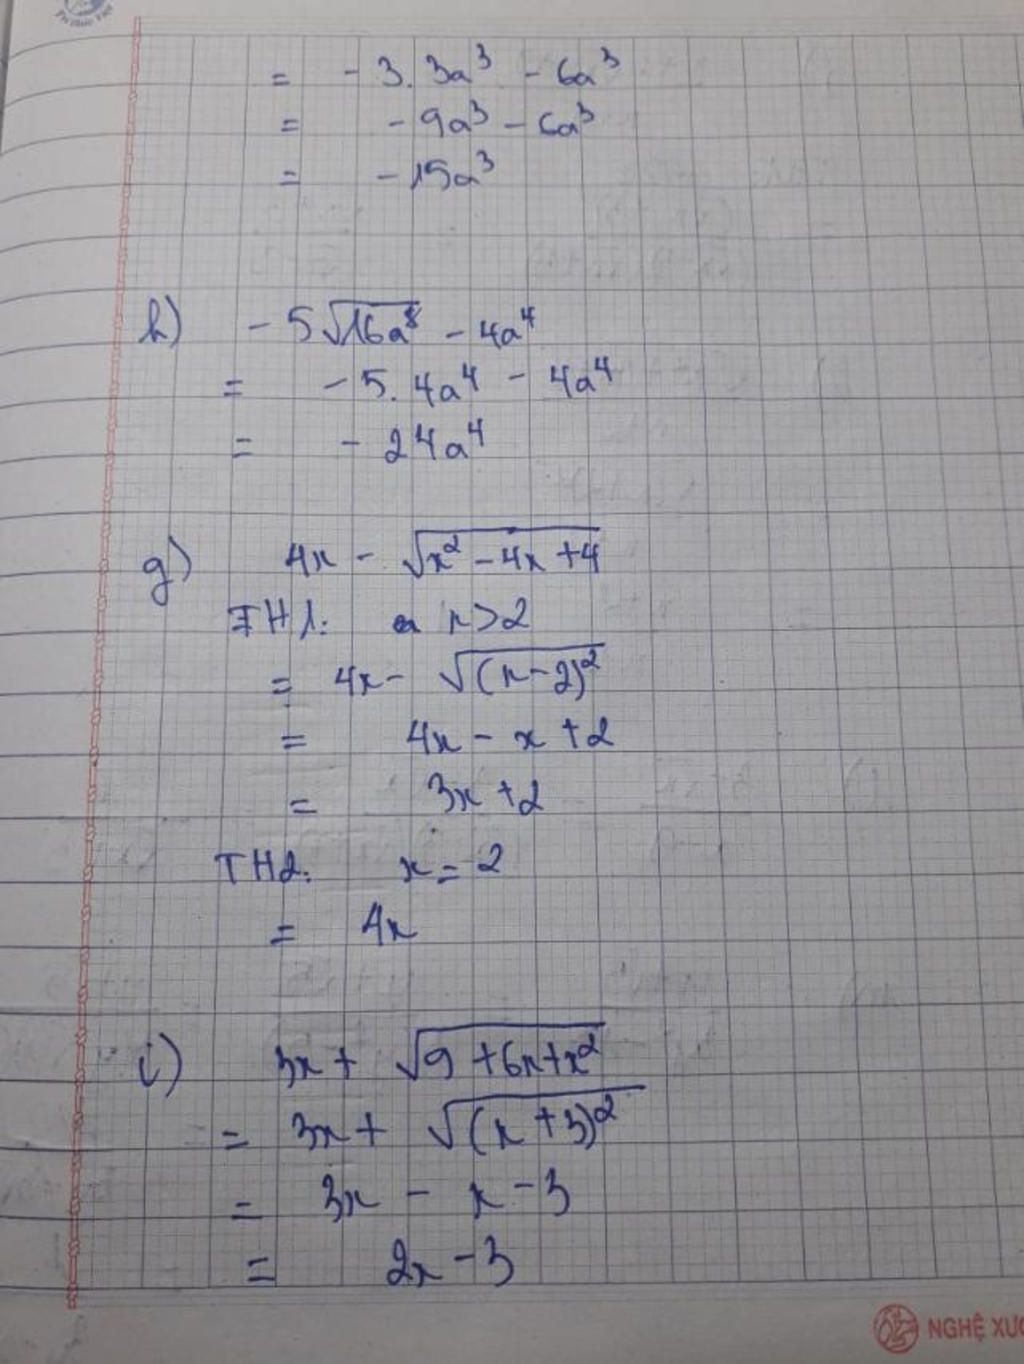 Tri thức Việt
= - 3. 3a³ - 6a³
= - 9a³ - 6a³
= - 15a³
h) - 5√16a⁸ - 4a⁴
= - 5. 4a⁴ - 4a⁴
= - 24a⁴
g) 4x - √x² - 4x + 4
TH1: x > 2
= 4x - √(x-2)²
= 4x - x + 2
= 3x + 2
TH2: x = 2
= 4x
i) 3x + √9 + 6x + x²
= 3x + √(x + 3)²
= 3x - x - 3
= 2x - 3
NGHỆ